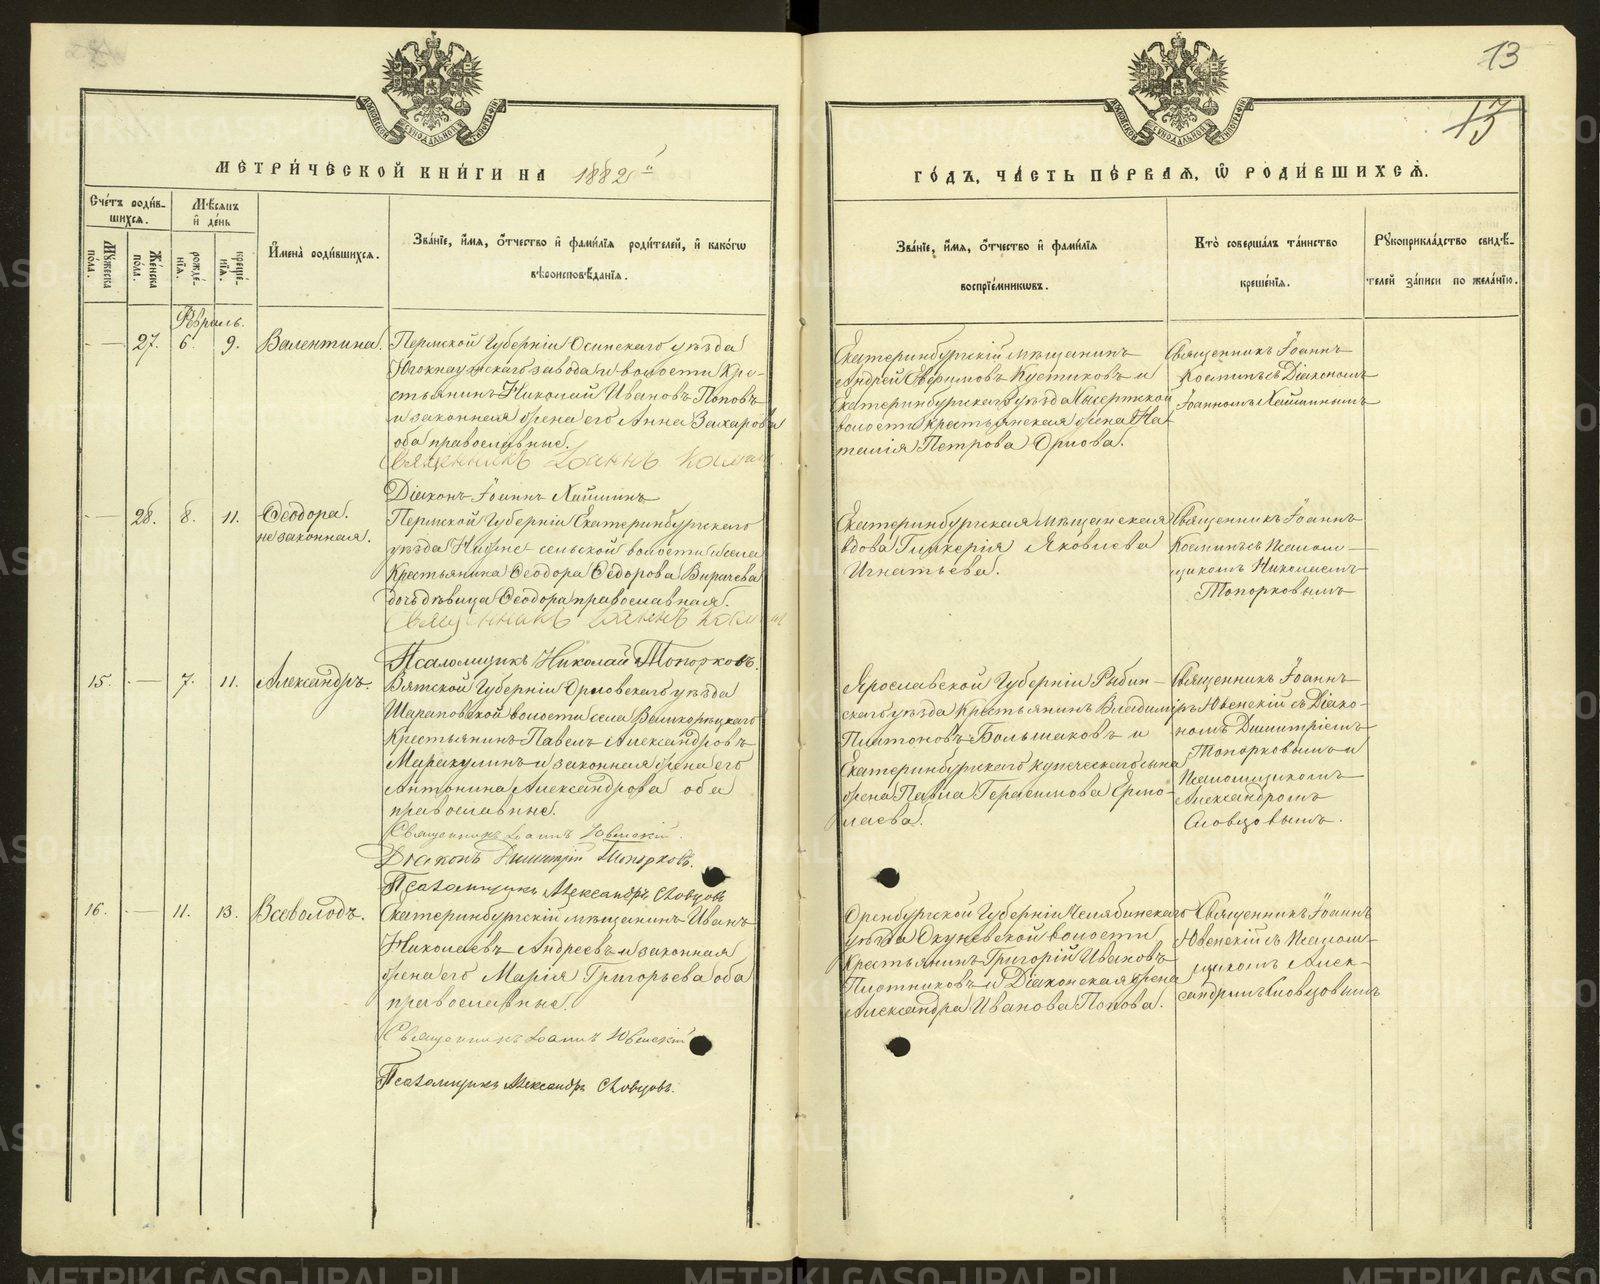 13
13
МЕТРИ́ЧЕСКОЙ КНИ́ГИ НА 1882 й
ГО́ДЪ, ЧА́СТЬ ПЕ́РВАЯ, Ѡ РОДИ́ВШИХСЯ.
Сче́тъ роди́вшихся.
Мѣ́сяцъ и де́нь
Му́жеска по́ла.
Же́нска по́ла.
рожде́нїя.
креще́нїя.
Имена̀ роди́вшихся.
Зва́нїе, и́мя, о́тчество и фами́лїя роди́телей, и како́гѡ
вѣроисповѣ́данїя.
Зва́нїе, и́мя, о́тчество и фами́лїя
воспрїе́мникѡвъ.
Кто̀ соверша́лъ та́инство
креще́нїя.
Рукоприкла́дство свидѣ́-
телей за́писи по жела́нїю.
Февраль.
— 27. 6. 9. Валентина.
Пермской Губерніи Осинскаго уѣзда
Югокнауфскаго завода и волости Кре-
стьянинъ Николай Ивановъ Поповъ
и законная жена его Анна Захарова
оба православные.
Священникъ Іоаннъ
Діаконъ Іоаннъ Хаминъ
Екатеринбургскій мѣщанинъ
Андрей Евфимовъ Кустиковъ и
Екатеринбургскаго уѣзда Кысертской
волости крестьянская жена На-
талія Петрова Орлова.
Священникъ Іоаннъ
съ Діакономъ
Іоанномъ
— 28. 8. 11. Ѳеодора.
незаконная.
Пермской Губерніи Екатеринбургскаго
уѣзда Нижне-сельской волости и села
Крестьянина Ѳеодора Ѳедорова Вирачева
дочь дѣвица Ѳеодора православная.
Священникъ Іоаннъ
Псаломщикъ Николай Топорковъ.
Екатеринбургская мѣщанская
вдова Гликерія Яковлева
Игнатьева.
Священникъ Іоаннъ
съ Псалом-
щикомъ Николаемъ
Топорковымъ
15. — 7. 11. Александръ.
Вятской Губерніи Орловскаго уѣзда
Шараповской волости села Великорѣцкаго
Крестьянинъ Павелъ Александровъ
Маракулинъ и законная жена его
Антонина Александрова оба
православные.
Священникъ Іоаннъ Ювенскій.
Діаконъ Димитрій Топорковъ.
Псаломщикъ Александръ Словцовъ
Ярославской Губерніи Рыбин-
скаго уѣзда Крестьянинъ Владиміръ
Платоновъ Большаковъ и
Екатеринбургскаго купеческаго сына
жена Павла Герасимова Ермо-
лаева.
Священникъ Іоаннъ
Ювенскій съ Діако-
номъ Димитріемъ
Топорковымъ и
Псаломщикомъ
Александромъ
Словцовымъ.
16. — 11. 13. Всеволодъ.
Екатеринбургскій мѣщанинъ Иванъ
Николаевъ Андреевъ и законная
жена его Марія Григорьева оба
православные.
Священникъ Іоаннъ Ювенскій
Псаломщикъ Александръ Словцовъ.
Оренбургской Губерніи Челябинскаго
уѣзда Окуневской волости
Крестьянинъ Григорій Ивановъ
Плотниковъ и Діаконская жена
Александра Иванова Попова.
Священникъ Іоаннъ
Ювенскій съ Псалом-
щикомъ Алек-
сандромъ Словцовымъ
METRIKI.GASO-URAL.RU